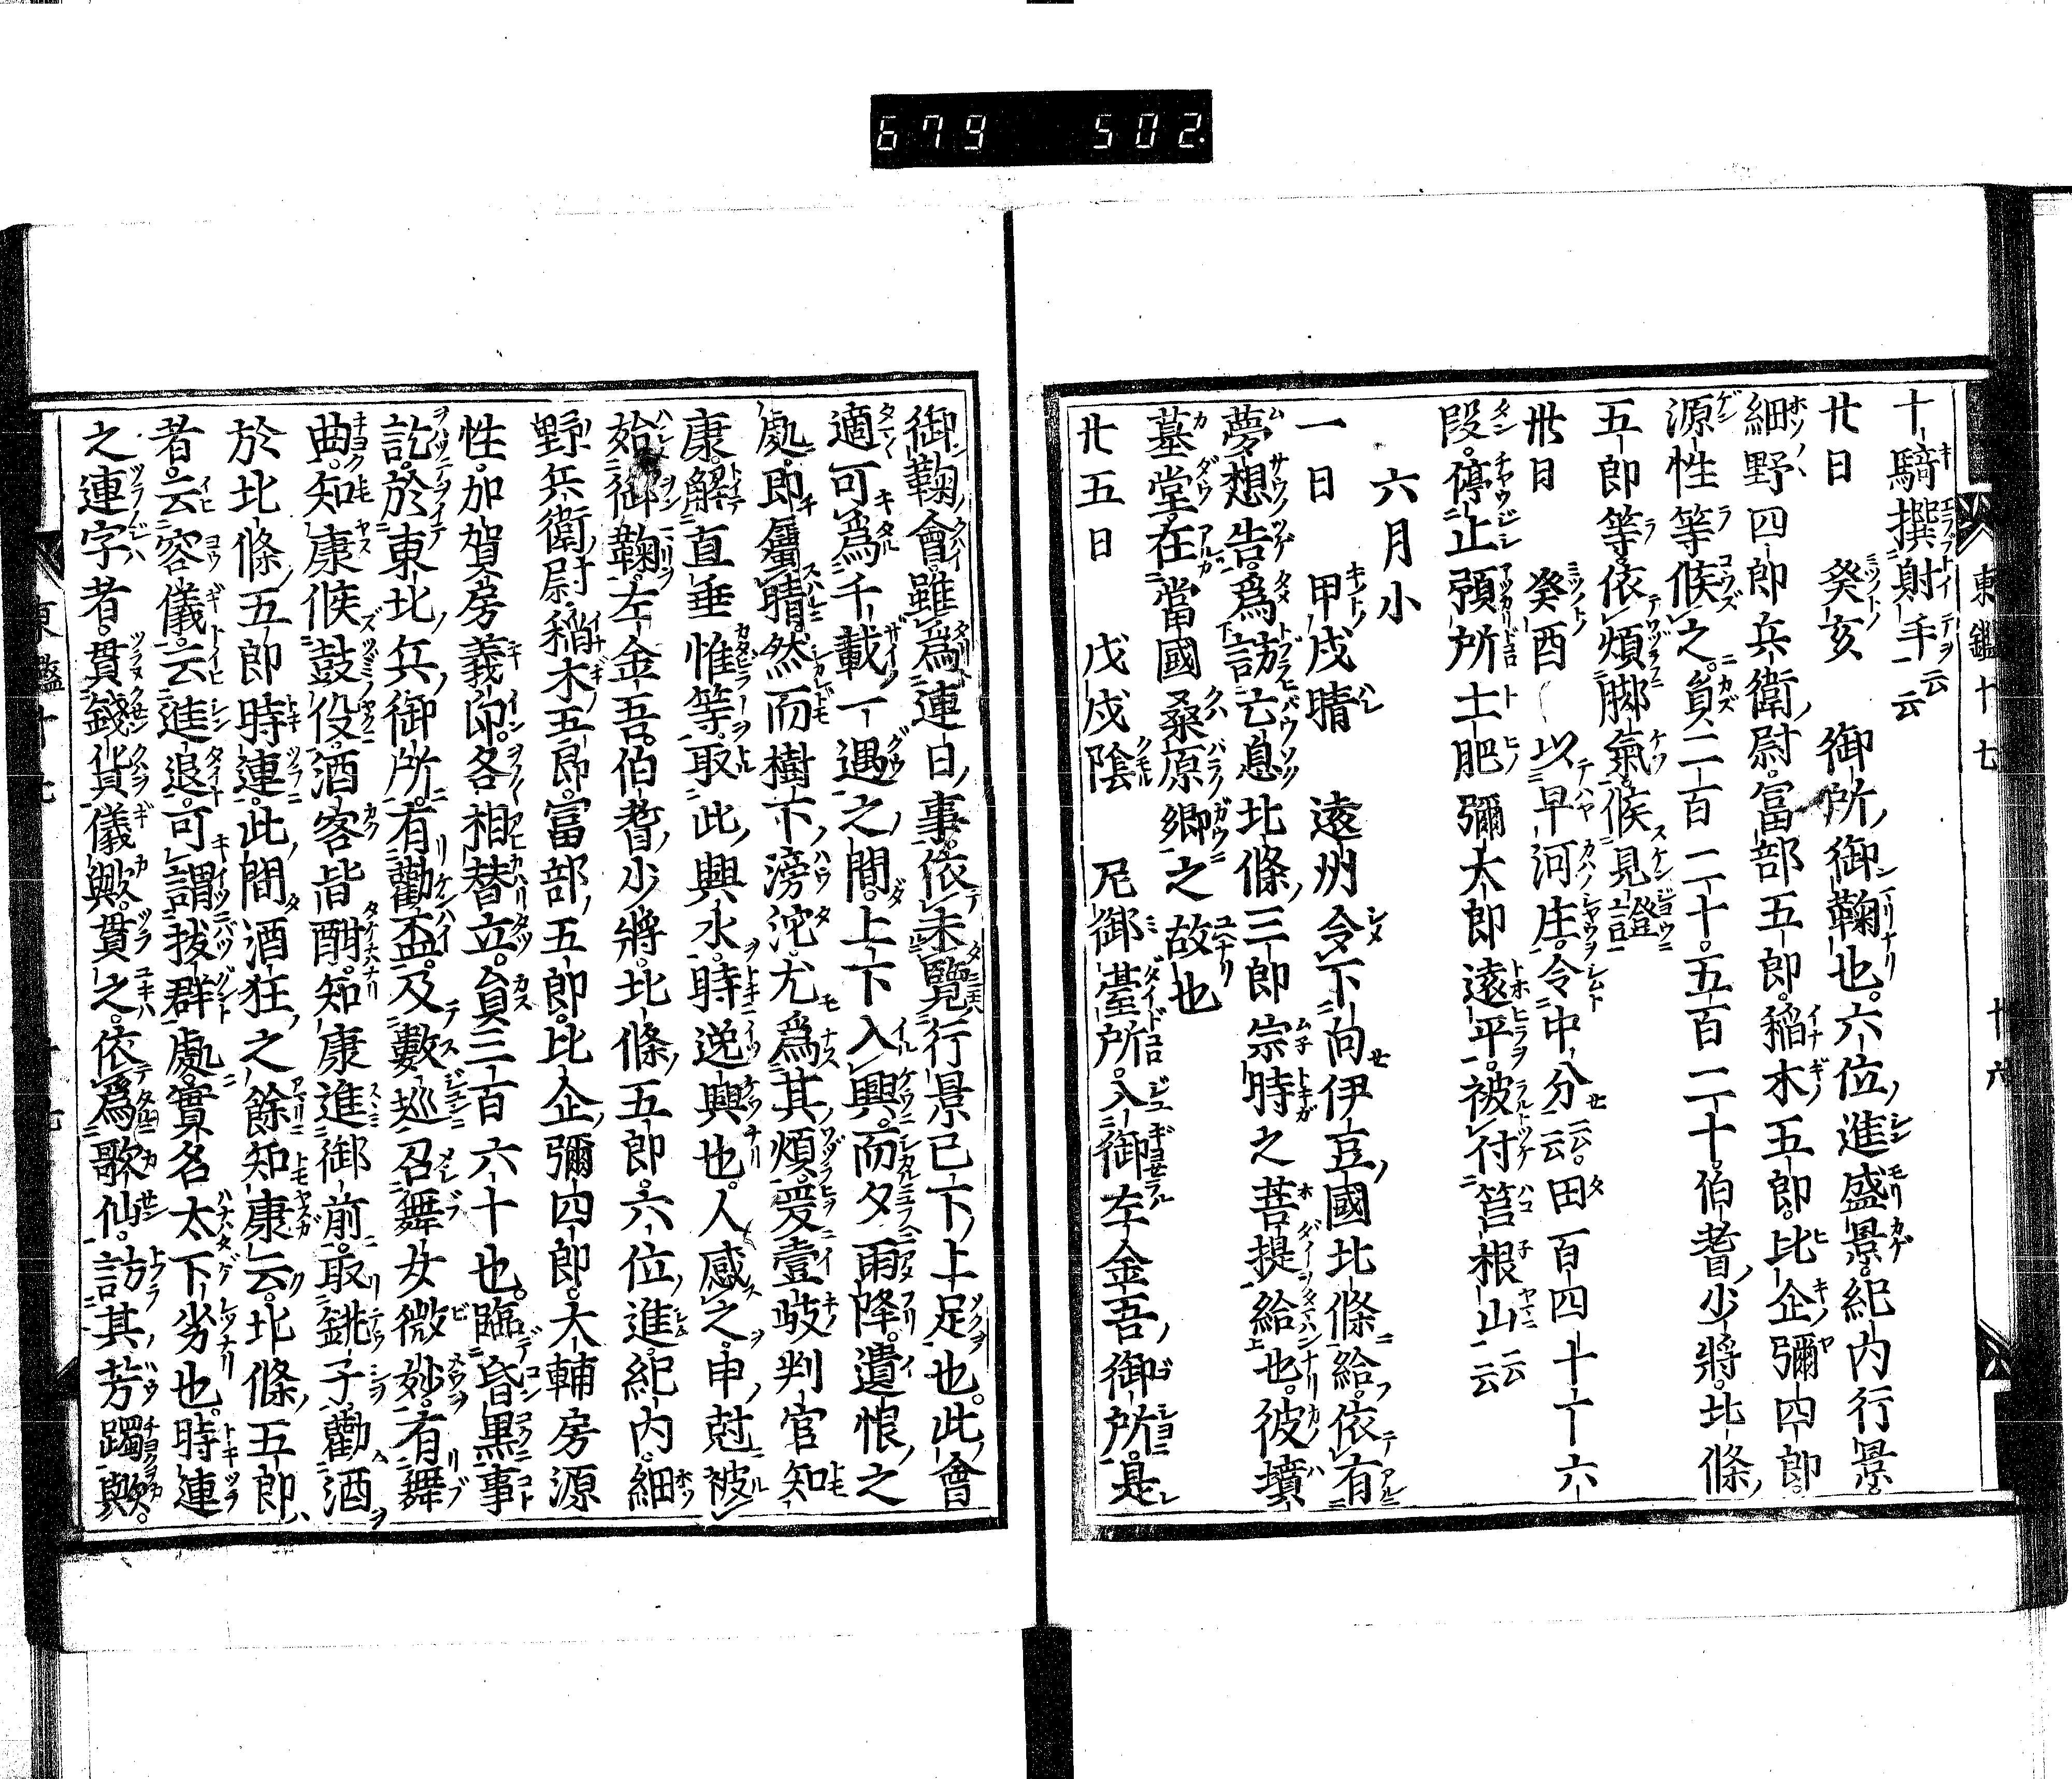 679 502
東鑑十七
十六
十騎撰射手云云
廿日 癸亥 御所御鞠也。六位進盛景。紀内行景
細野四郎兵衛尉。富部五郎。稲木五郎。比企彌四郎。
源性等候之。員二百二十。五百二十。伯耆少將。北條
五郎等。依煩脚氣。候見證
卅日 癸酉 以早河庄。令中分云云。田百四十丁六
段。停止預所土肥彌太郎遠平。被付筥根山云云
六月小
一日 甲戌晴 遠州令下向伊豆國北條給。依有
夢想告。為訪亡息北條三郎宗時之菩提給也。彼墳
墓堂。在當國桑原郷之故也
廿五日 戊戌陰 尼御臺所。入御左金吾御所。是
御鞠會。雖為連日事。依未覽行景已下上足也。此會
適可為千載一遇之間。上下入興。而夕雨降。遺恨之
處。即屬晴。然而樹下滂沱。尤為其煩。爰壹岐判官知
康。解直垂帷等。取此興水。時逸興也。人感之。申尅被
始御鞠。左金吾。伯耆少將。北條五郎。六位進。紀内。細
野兵衛尉。稲木五郎。富部五郎。比企彌四郎。大輔房源
性。加賀房義印。各相替立。員三百六十也。臨昏黑事
訖。於東北兵御所。有勸盃。及數巡。召舞女微妙。有舞
曲。知康候鼓役。酒客皆酣。知康進御前。取銚子勸酒
於北條五郎時連。此間酒狂之餘。知康云。北條五郎
者。云容儀。云進退。可謂抜群處。實名太下劣也。時連
之連字者。貫錢貨儀歟。貫之。依為歌仙。訪其芳躅歟。